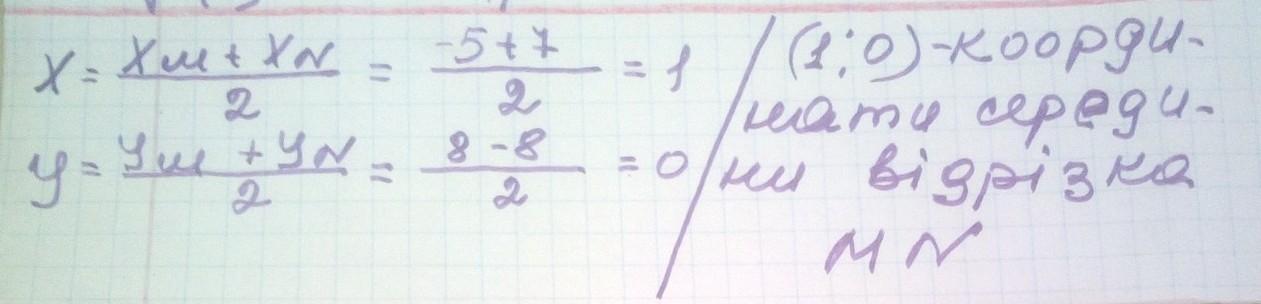 x = (xм + xN)/2 = (-5+7)/2 = 1
y = (yм + yN)/2 = (8-8)/2 = 0
(1;0)-коорди-
нати середи-
ни відрізка
MN